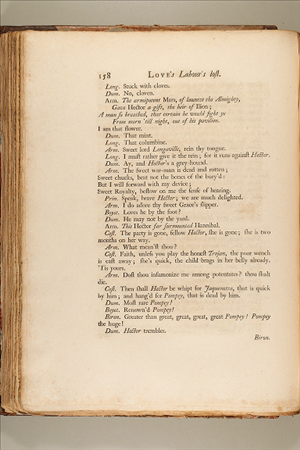 158 LOVE's Labour's lost.
Long. Stuck with cloves.
Dum. No, cloven.
Arm. The armipotent Mars, of launces the Almighty,
Gave Hector a gift, the heir of Ilion;
A man so breathed, that certain he would fight ye
From morn 'till night, out of his pavilion.
I am that flower.
Dum. That mint.
Long. That columbine.
Arm. Sweet lord Longaville, rein thy tongue.
Long. I must rather give it the rein; for it runs against Hector.
Dum. Ay, and Hector's a grey-hound.
Arm. The sweet war-man is dead and rotten;
Sweet chucks, beat not the bones of the bury'd:
But I will forward with my device;
Sweet Royalty, bestow on me the sense of hearing.
Prin. Speak, brave Hector; we are much delighted.
Arm. I do adore thy sweet Grace's slipper.
Boyet. Loves he by the foot?
Dum. He may not by the yard.
Arm. This Hector far surmounted Hannibal.
Cost. The party is gone, fellow Hector, she is gone; she is two
months on her way.
Arm. What mean'st thou?
Cost. Faith, unless you play the honest Trojan, the poor wench
is cast away; she's quick, the child brags in her belly already.
'Tis yours.
Arm. Dost thou infamonize me among potentates? thou shalt
die.
Cost. Then shall Hector be whipt for Jaquenetta, that is quick
by him; and hang'd for Pompey, that is dead by him.
Dum. Most rare Pompey!
Boyet. Renown'd Pompey!
Biron. Greater than great, great, great, great Pompey! Pompey
the huge!
Dum. Hector trembles.
Biron.